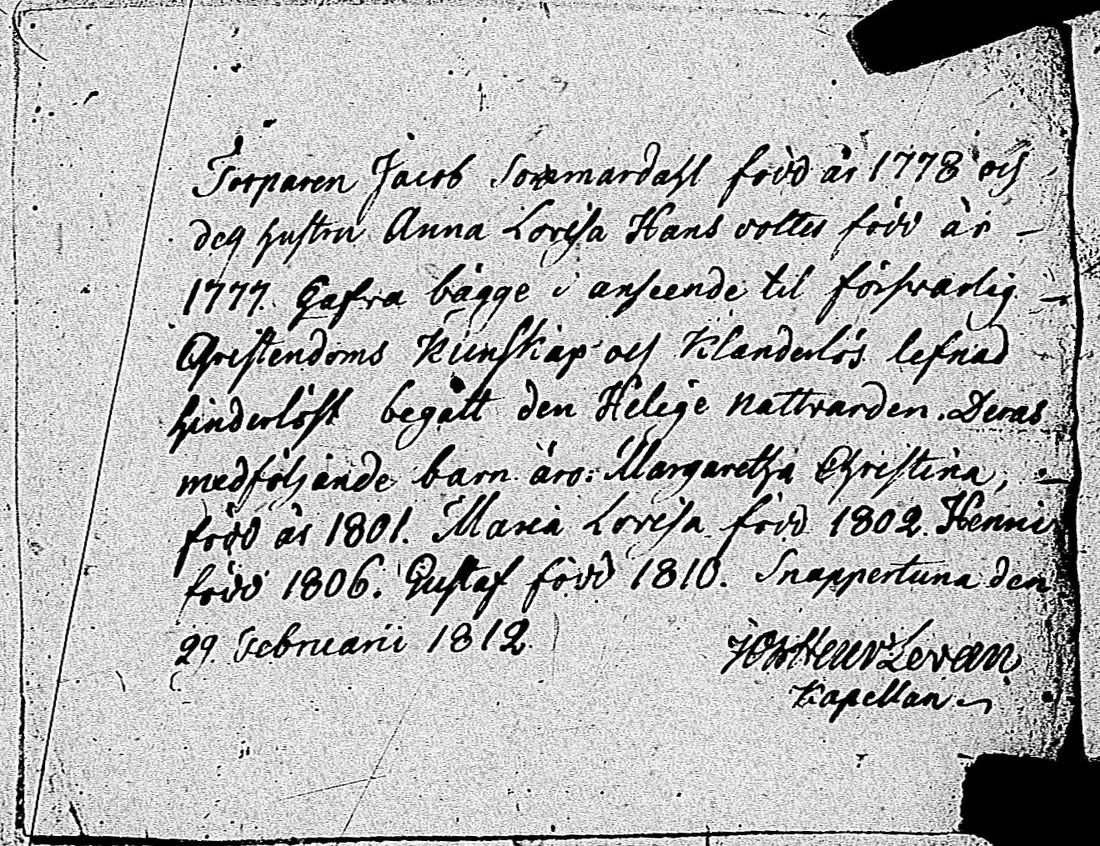 Torparen Jacob Sommardahl född år 1778 och
deß hustru Anna Lovisa Hans dotter född år
1777. Hafva bägge i anseende til försvarlig
Christendoms Kunskap och Klanderlös lefnad
hinderlöst begått den Helige Nattvarden. Deras
medföljande barn äro: Margaretha Christina,
född år 1801. Maria Lovisa född 1802. Henric
född 1806. Gustaf född 1810. Snappertuna den
29. Februarii 1812.
Levan
Kapellan